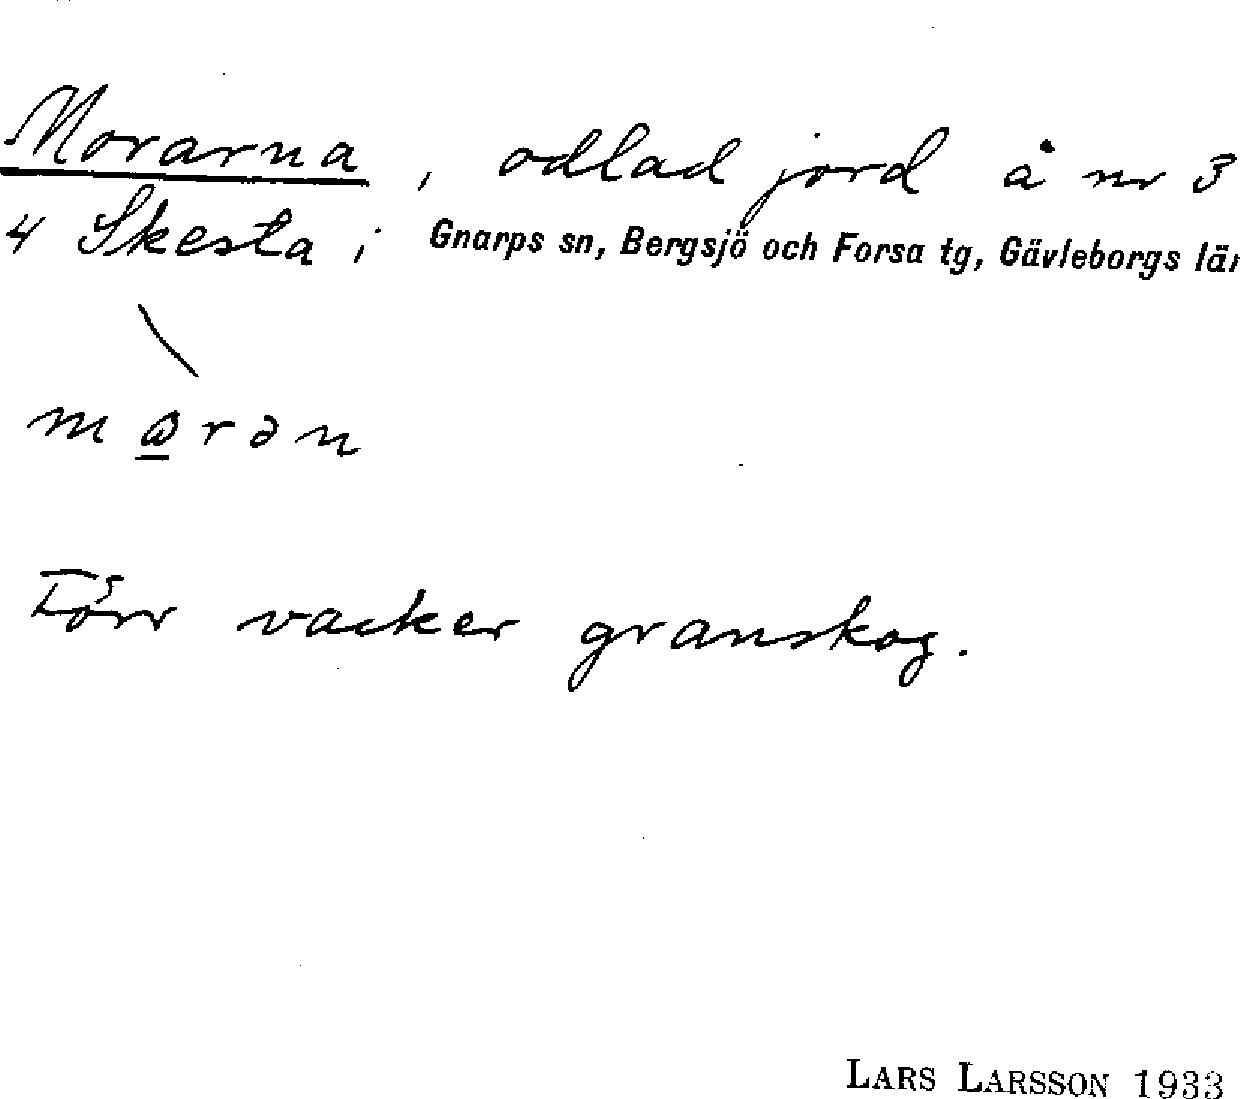 Morarna, odlad jord å nr 3
4 Skesta i Gnarps sn, Bergsjö och Forsa tg, Gävleborgs län
Förr vacker granskog.
LARS LARSSON 1933